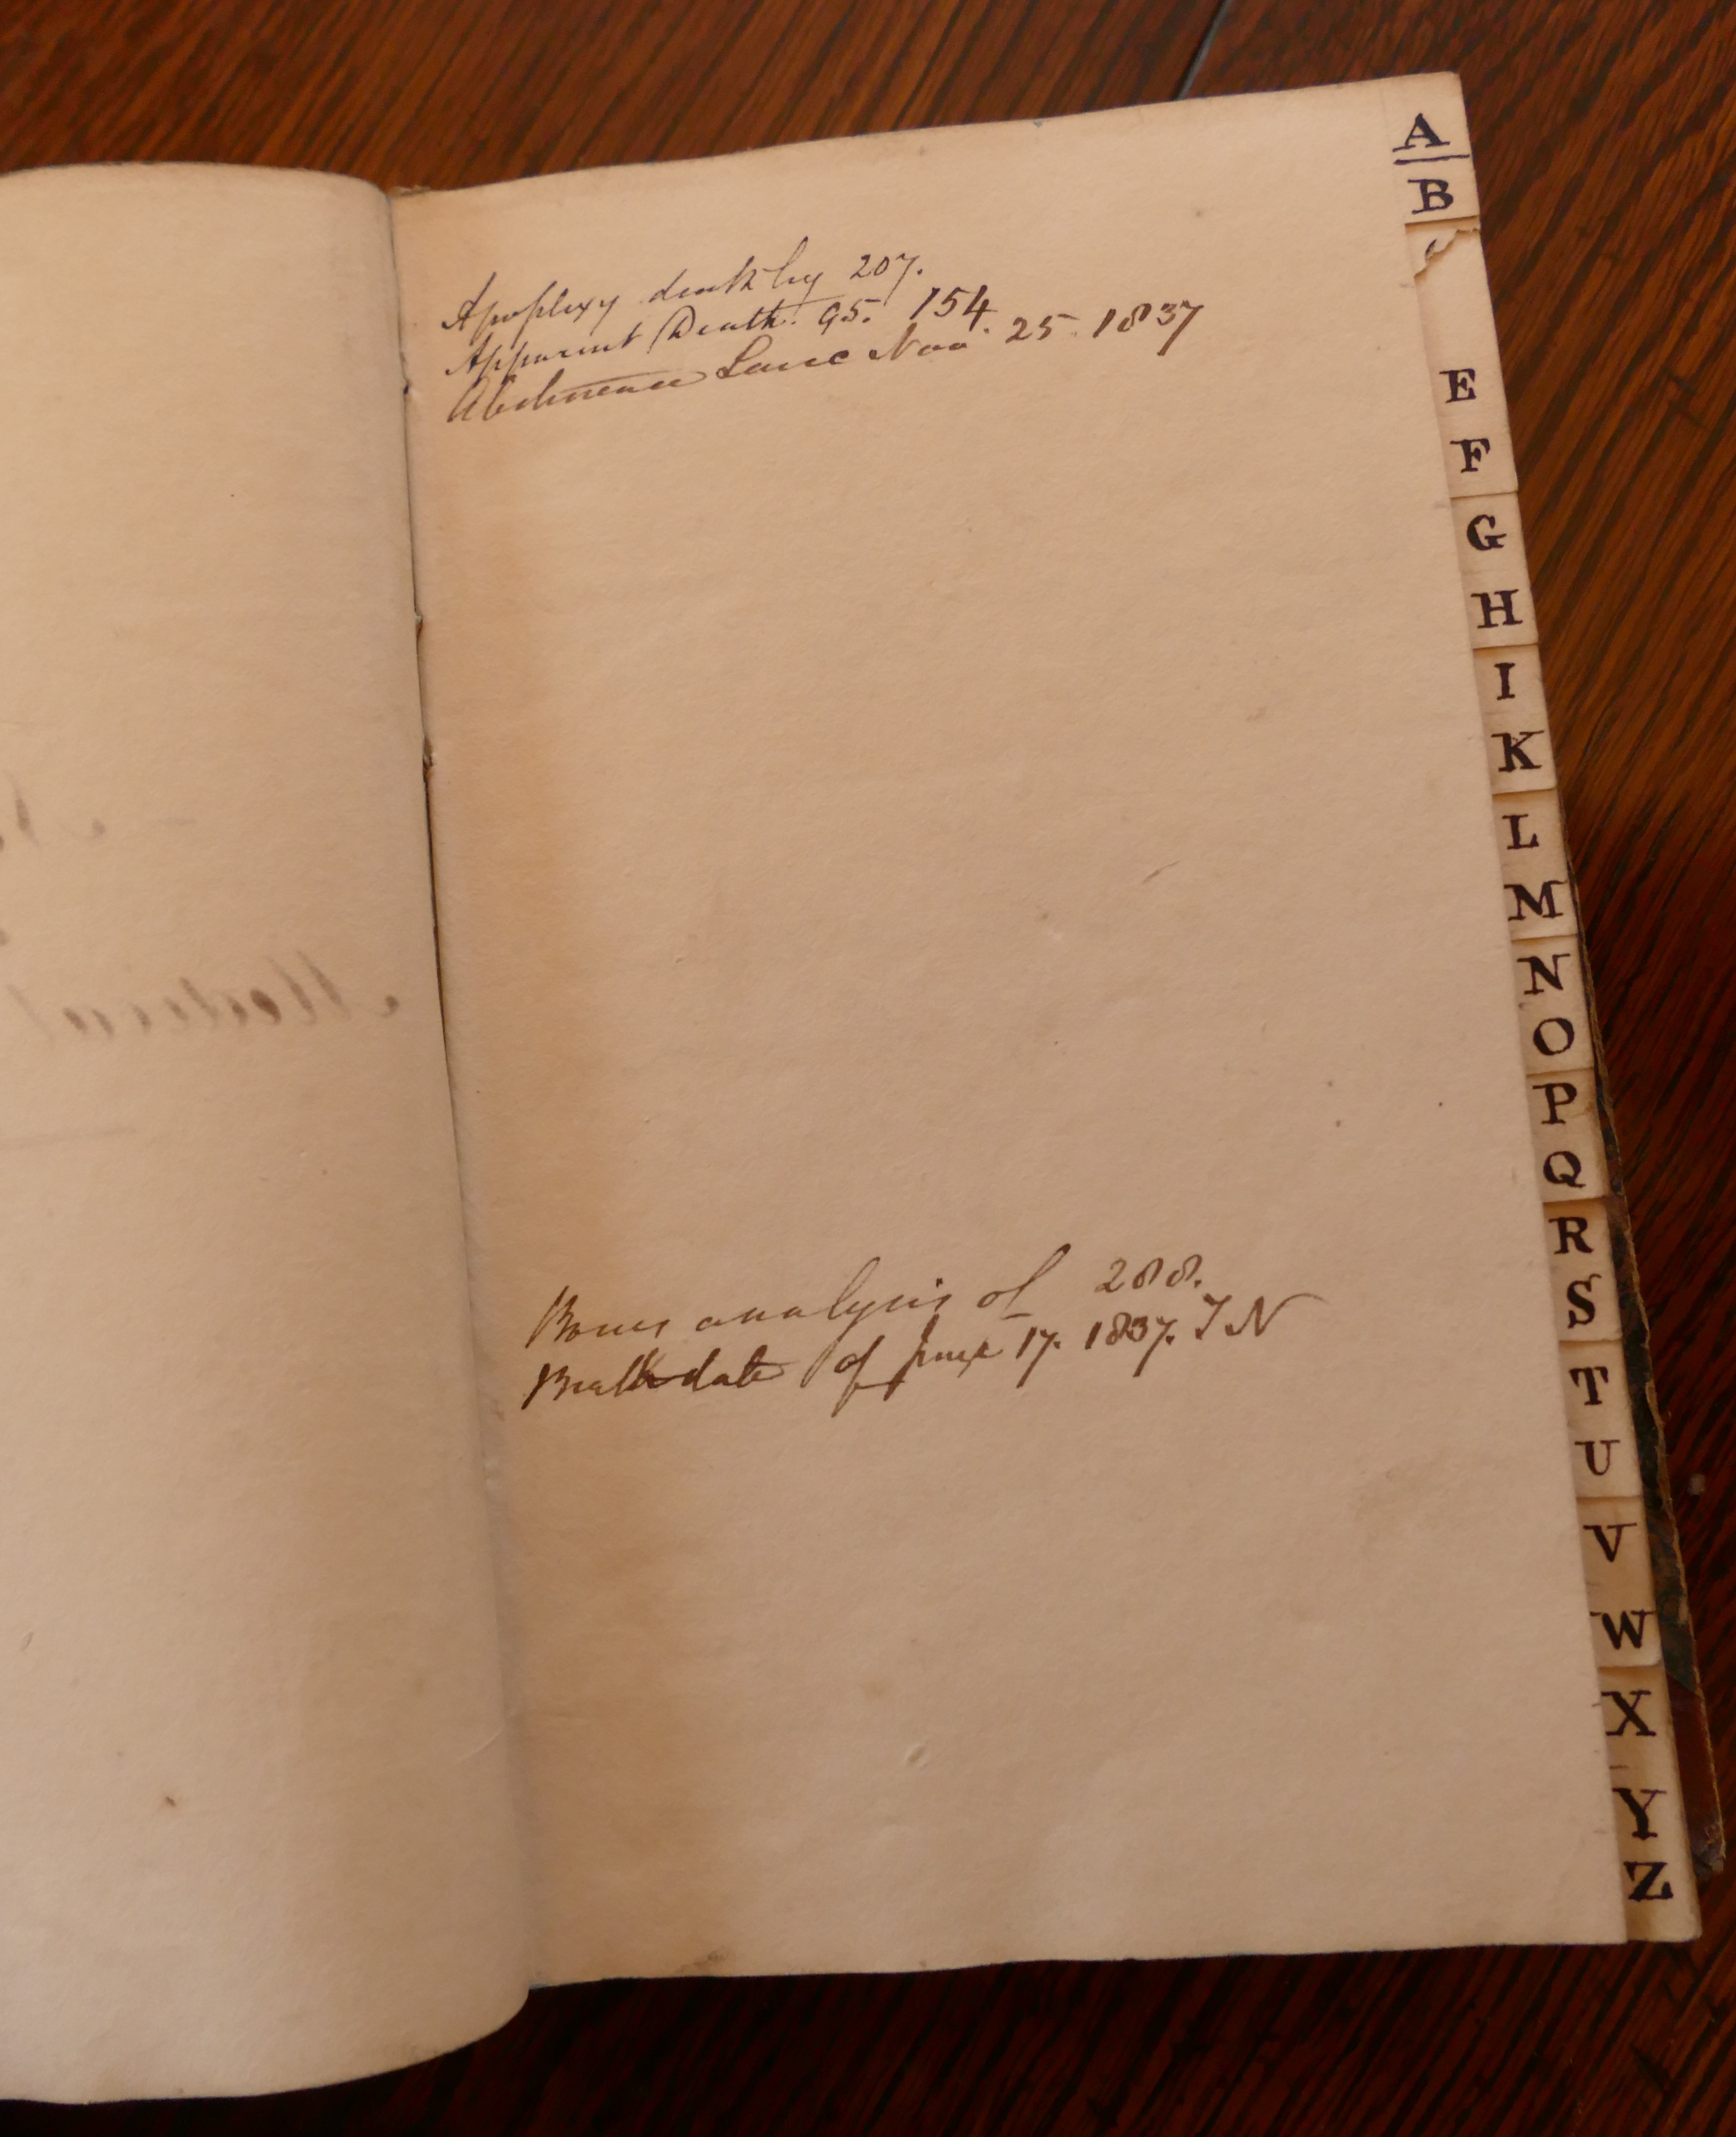 Apoplexy death by 207.
Apparent Death. 95. 154.
Abdomen Nov 25. 1837
Bones analysis of 288.
date of June 17. 1837. J N
Medical
A
B
E
F
G
H
I
K
L
M
N
O
P
Q
R
S
T
U
V
W
X
Y
Z